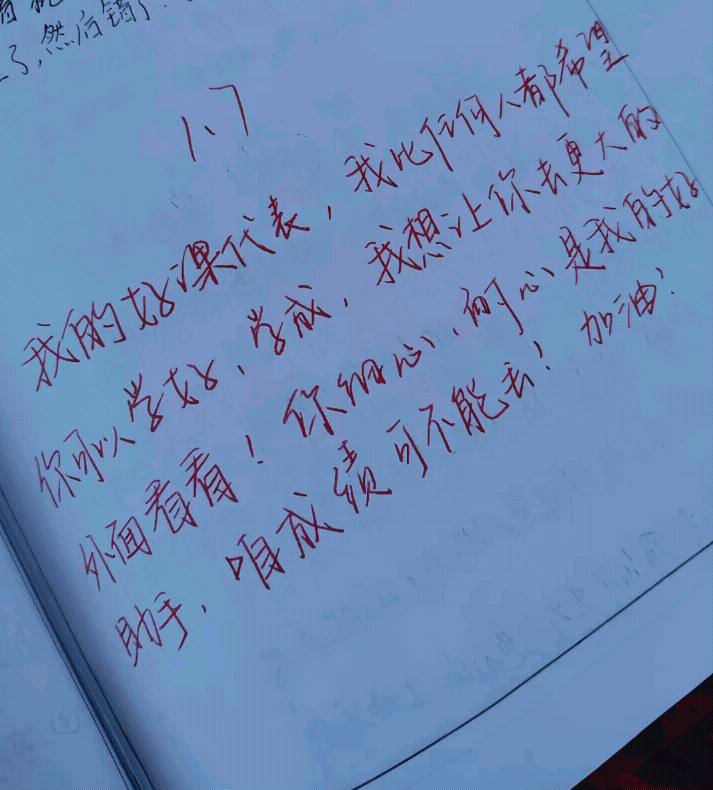 了,然后错了
1.7
我的好课代表,我比任何人都希望
你可以学好、学成,我想让你去更大的
外面看看!你细心、耐心是我的好
助手,咱成绩可不能丢!加油!